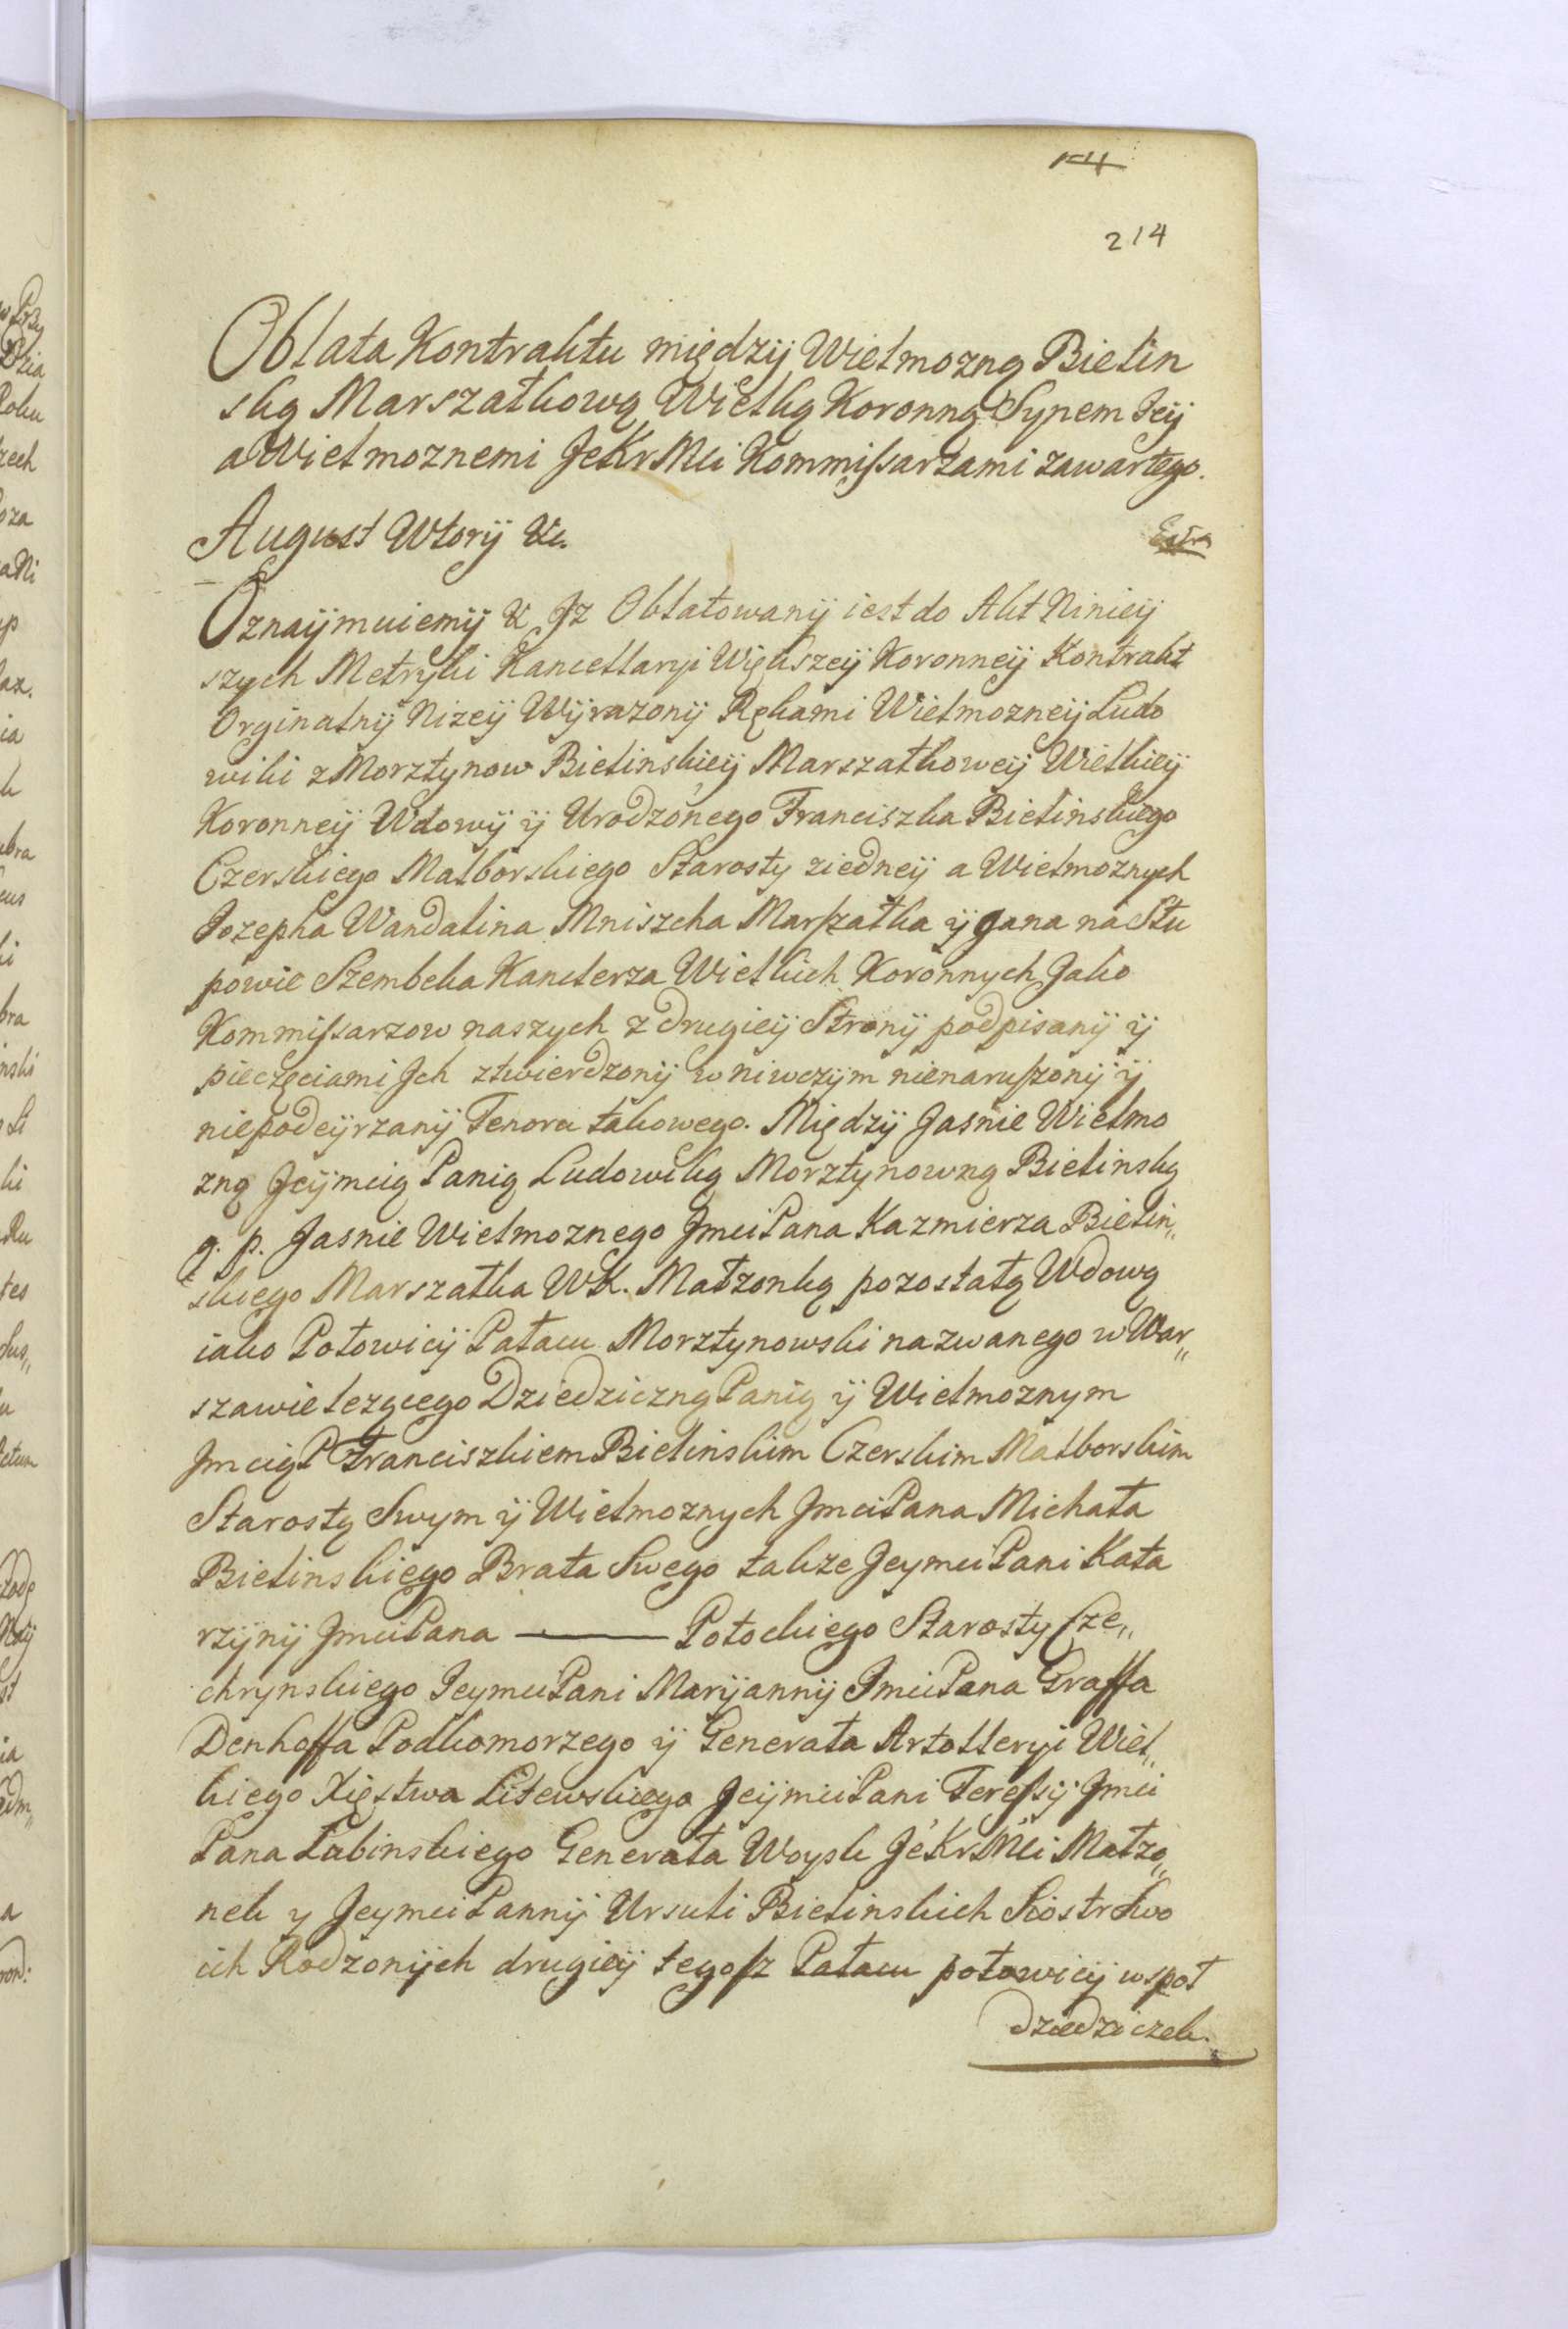 214
Oblata Kontraktu między Wielmozną Bielin
ską Marszałkową Wielką Koronną Synem Jeij
a Wielmoznemi JeKrMci Kommissarzami zawartego.
August Wtorij &c.
Extra
Oznaijmuiemij &c Jz Oblatowanij iest do Akt Ninieij
szych Metryki Kancellaryi Większeij Koronneij Kontrakt
Orginalnij Nizeij Wijrazonij Rękami Wielmozneij Ludo
wiki z Morztynow Bielinskieij Marszałkoweij Wielkieij
Koronneij Wdowij ij Urodzonego Franciszka Bielinskiego
Czerskiego Malborskiego Starosty ziedneij a Wielmoznych
Jozepha Wandalina Mniszcha Marszałka ij Jana na Słu
powie Szembeka Kanclerza Wielkich Koronnych Jako
Kommissarzow naszych z drugieij Stronij podpisanij ij
pieczęciami Jch ztwierdzonij w niwczijm nienaruszonij ij
niepodeijrzanij Tenoru takowego. Między Jasnie Wielmo
zną Jeijmcią Panią Ludowiką Morztynowną Bielinską
g. p. Jasnie Wielmoznego JmciPana Kazmierza Bielin„
skiego Marszałka WK. Małzonką pozostałą Wdową
iako Połowicij Pałacu Morztynowski nazwanego w War„
szawie lezącego Dziedziczną Panią ij Wielmoznym
JmciąP Franciszkiem Bielinskim Czerskim Malborskim
Starostą Swym ij Wielmoznych JmciPana Michała
Bielinskiego Brata Swego takze JeymciPani Kata
rzijnij JmciPana ——— Potockiego Starosty Cze„
chrynskiego JeymciPani Marijannij JmciPana Graffa
Denhoffa Podkomorzego ij Generała Artolleryi Wiel„
kiego Xięstwa Litewskiego JeijmciPani Teressij Jmci
Pana Łubinskiego Generała Woysk JeKrMci Małzo„
nek y JeymciPannij Ursuli Bielinskich Siostr Swo
ich Rodzonijch drugieij tegosz Pałacu połowicij wspoł
dziedziczek.